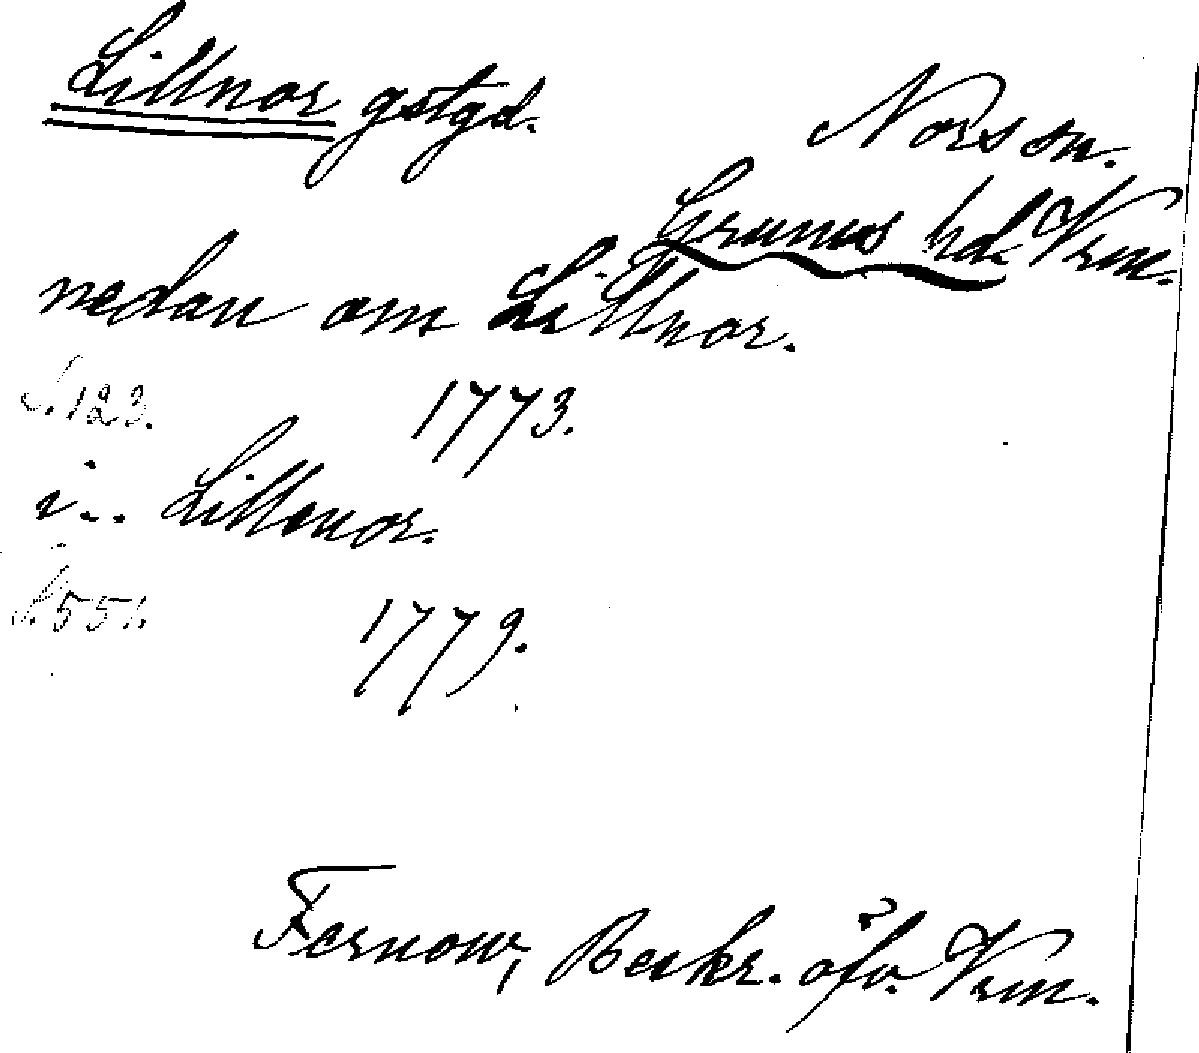 Lillnor gstgd.
Nors sn.
Grums hd. Vrm.
nedan om Lillnor.
S. 123.
1773.
i .. Lillenor.
S. 551.
1779.
Fernow, Beskr. öfv. Vrm.